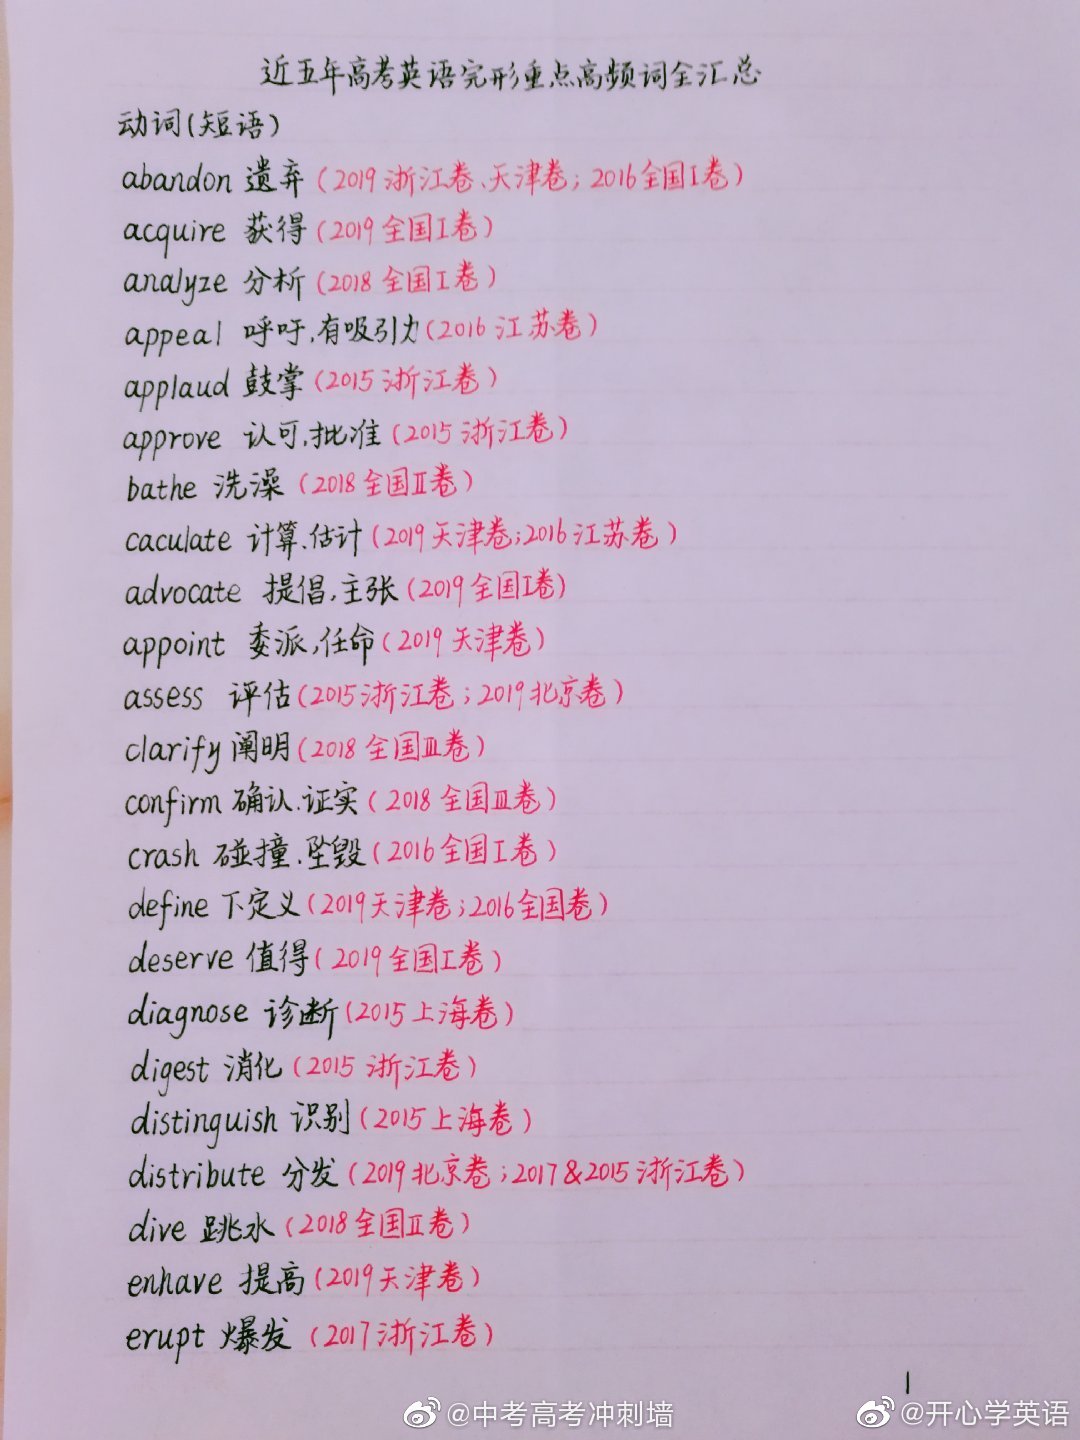 近五年高考英语完形重点高频词全汇总
动词(短语)
abandon 遗弃 (2019浙江卷、天津卷; 2016全国I卷)
acquire 获得 (2019全国I卷)
analyze 分析 (2018全国I卷)
appeal 呼吁,有吸引力(2016江苏卷)
applaud 鼓掌 (2015浙江卷)
approve 认可,批准 (2015浙江卷)
bathe 洗澡 (2018全国II卷)
caculate 计算、估计 (2019天津卷;2016江苏卷)
advocate 提倡,主张 (2019全国I卷)
appoint 委派,任命 (2019天津卷)
assess 评估 (2015浙江卷; 2019北京卷)
clarify 阐明 (2018全国III卷)
confirm 确认、证实 (2018全国III卷)
crash 碰撞、坠毁 (2016全国I卷)
define 下定义 (2019天津卷;2016全国卷)
deserve 值得 (2019全国I卷)
diagnose 诊断 (2015上海卷)
digest 消化 (2015浙江卷)
distinguish 识别 (2015上海卷)
distribute 分发 (2019北京卷;2017&2015浙江卷)
dive 跳水 (2018全国II卷)
enhave 提高 (2019天津卷)
erupt 爆发 (2017浙江卷)
1
@中考高考冲刺墙
@开心学英语